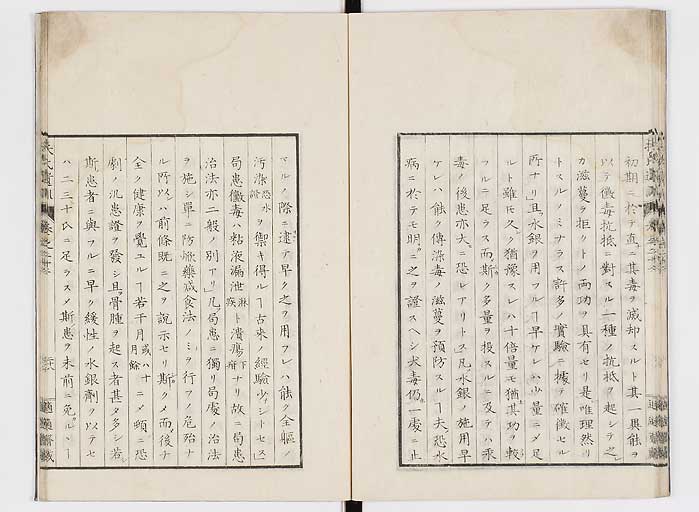 初期ニ於テ直ニ其毒ヲ滅却スルト其一異能ヲ
以テ黴毒抗抵ニ對スル一種ノ抗抵ヲ起シテ之
カ滋蔓ヲ拒クトノ両功ヲ具有セリ是唯理然リ
トスルノミナラス許多ノ實驗ニ據テ確徴セル
所ナリ且水銀ヲ用フルヿ早ケレハ少量ニメ足
ルト雖モ久ク猶豫スレハ十倍量モ猶其功ヲ較
フルニ足ラス而斯ク多量ヲ投スルニ及テハ汞
毒ノ後患亦大ニ恐レアリトス凡水銀ノ施用早
ケレハ能ク傳染毒ノ滋蔓ヲ預防スルヿ夫恐水
病ニ於テモ明ニ之ヲ證スヘシ犬毒仍一處ニ止
マルノ際ニ逮テ早ク之ヲ用フレハ能ク全軀ノ
汚染恐水ヲ禦キ得ルヿ古来ノ經驗少シトセス
局患黴毒ハ粘液漏泄淋疾ト潰瘍下疳ナリ故ニ局患
治法亦二般ノ別アリ凡局患ニ獨リ局處ノ治法
ヲ施シ單ニ防焮藥減食法ノミヲ行フノ危殆ナ
ル所以ハ前條既ニ之ヲ説示セリ斯クメ而後ナ
全ク健康ヲ覺ユルヿ若干月或ハ十月餘ニメ頓ニ恐
劇ノ汎患證ヲ發シ且骨腫ヲ起ス者甚タ多シ若
斯患者ニ與フルニ早ク緩性ノ水銀劑ヲ以テセ
ハ二三十氏ニ足ラスメ斯患ヲ未前ニ免ルヿ